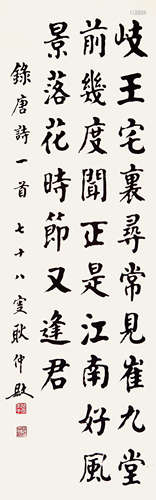 岐王宅裏尋常見崔九堂
前幾度聞正是江南好風
景落花時節又逢君
錄唐詩一首 七十八叟耿仲敭